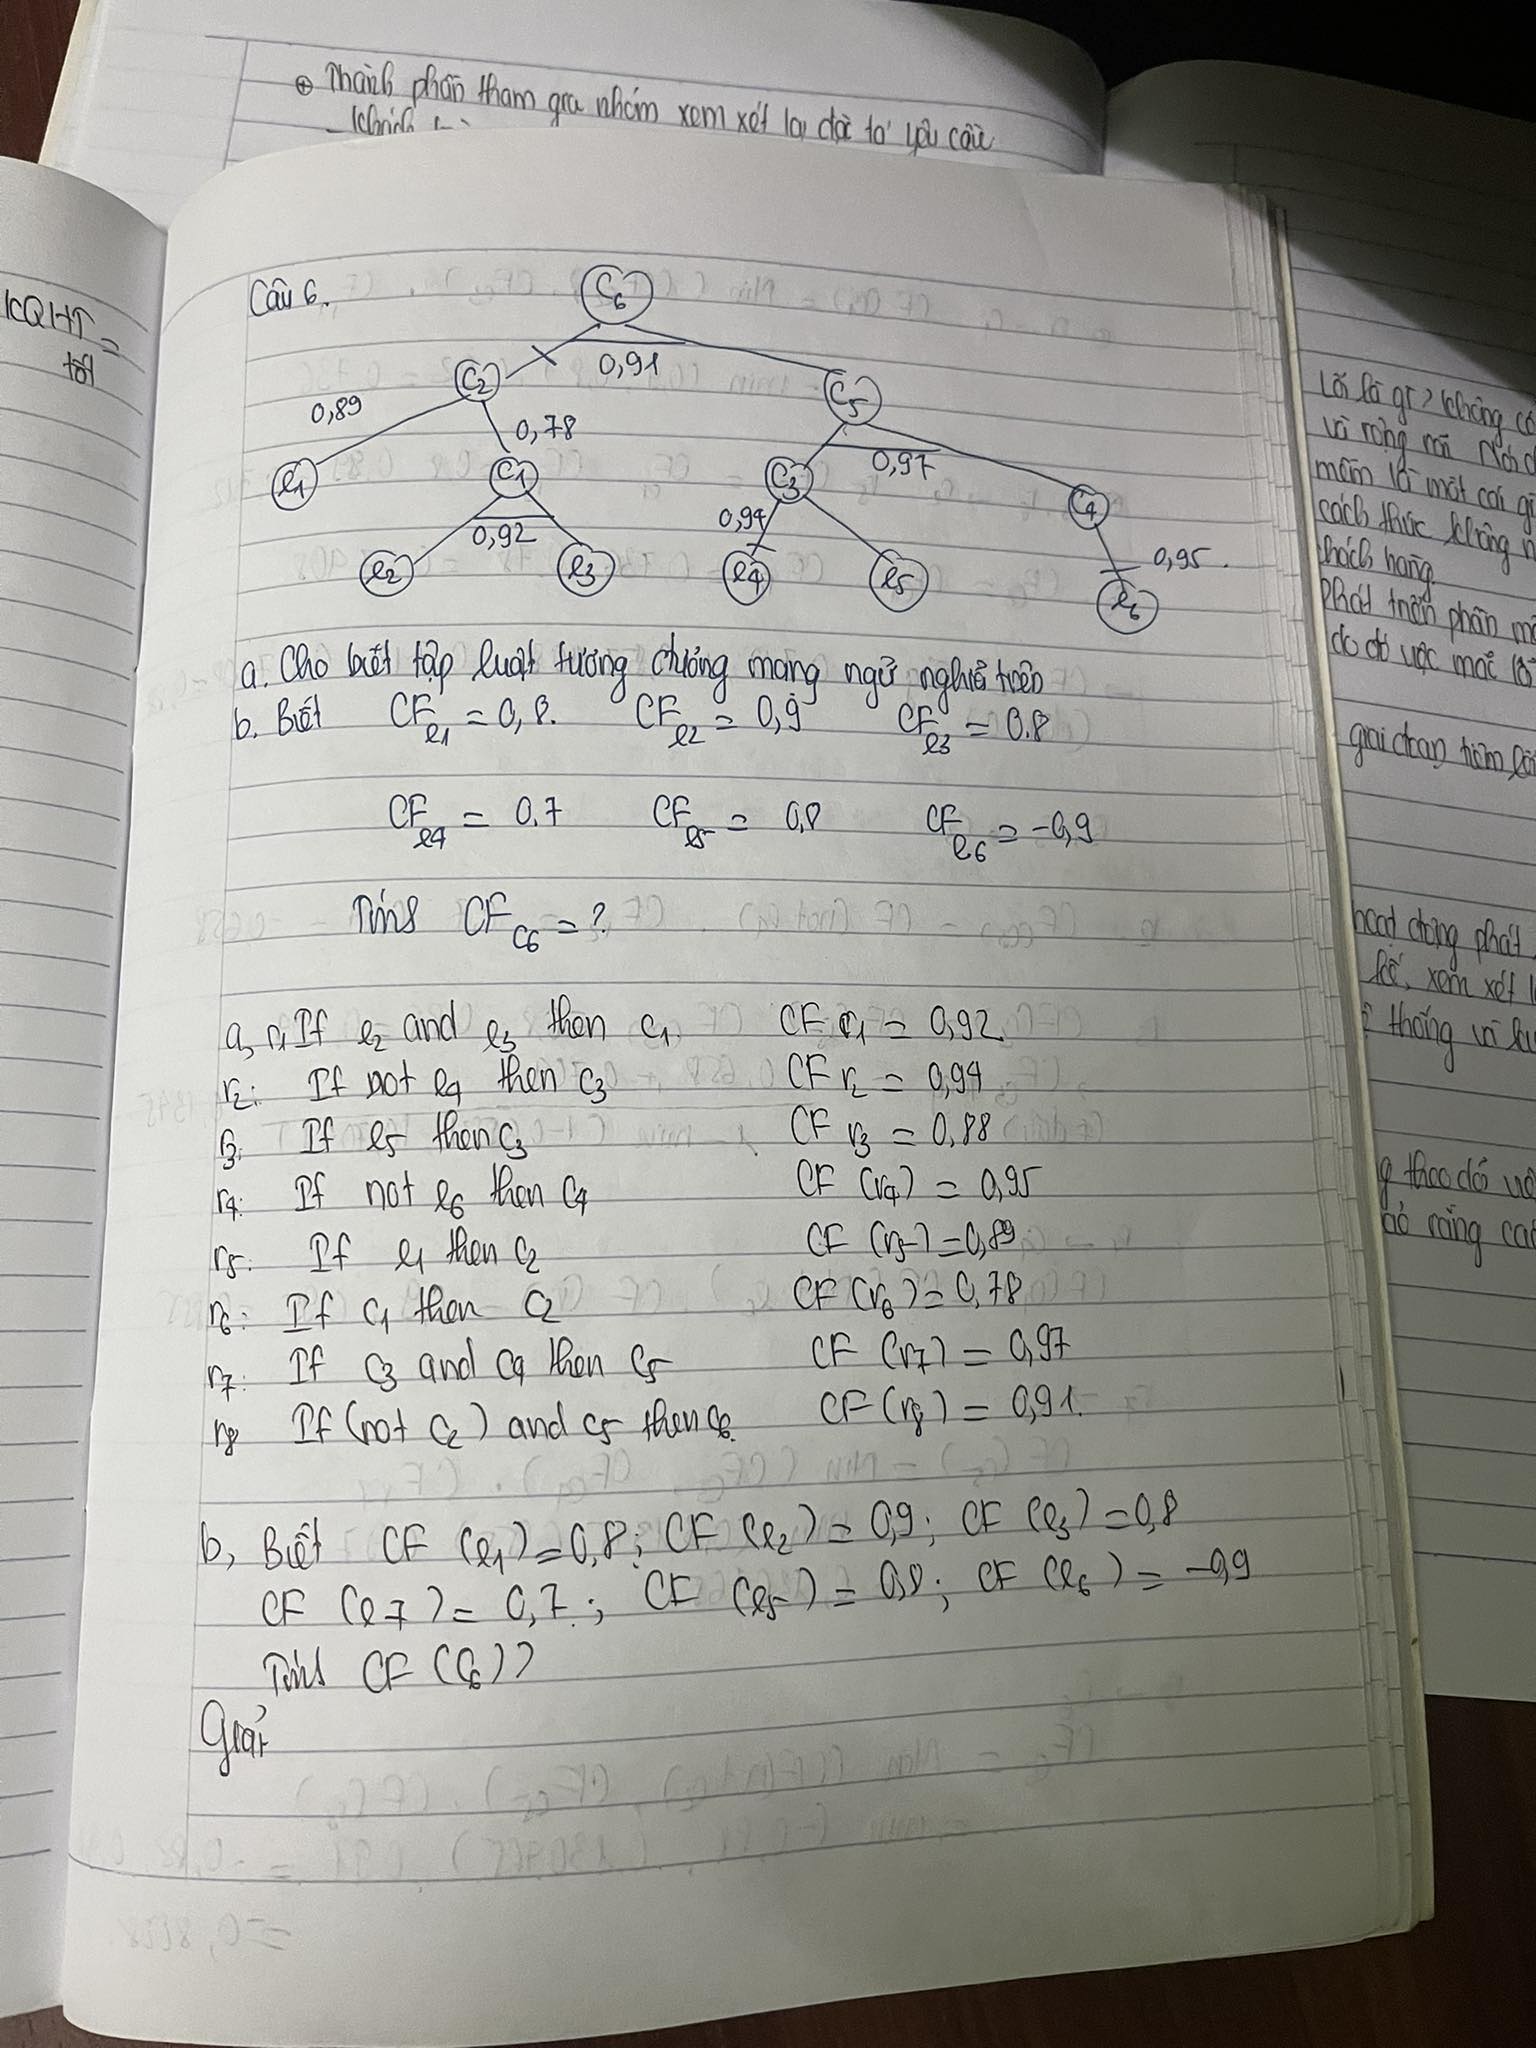 ⊕ Thành phần tham gia nhóm xem xét lại đặc tả yêu cầu
KQHT =
tốt
Câu 6.
C6
0,91
C2
C5
0,89
0,78
0,97
e1
C1
C3
C4
0,92
0,94
0,95.
e2
e3
e4
e5
e6
a. Cho biết tập luật tương đương mạng ngữ nghĩa trên
b. Biết CFe1 = 0,8. CFe2 = 0,9 CFe3 = 0.8
CFe4 = 0.7 CFe5 = 0,8 CFe6 = -0,9
Tính CFC6 = ?
a, r1 If e2 and e3 then c1 CF r1 = 0,92
r2: If not e4 then c3 CF r2 = 0,94
r3: If e5 then c3 CF r3 = 0,88
r4: If not e6 then c4 CF (r4) = 0,95
r5: If e1 then c2 CF (r5) = 0,89
r6: If c1 then c2 CF (r6) = 0,78
r7: If c3 and c4 then c5 CF (r7) = 0,97
r8 If (not c2) and c5 then c6. CF (r8) = 0,91.
b, Biết CF (e1) = 0,8; CF (e2) = 0,9; CF (e3) = 0,8
CF (e7) = 0,7; CF (e5) = 0,8; CF (e6) = -0,9
Tính CF (C6)?
Giải
Lõi là gì? không có
và rộng rãi
mềm là một cái gì
cách thức không
khách hàng.
phát triển phần mề
do đó việc mắc lỗ
giai đoạn
hoạt động phát
kế, xem xét